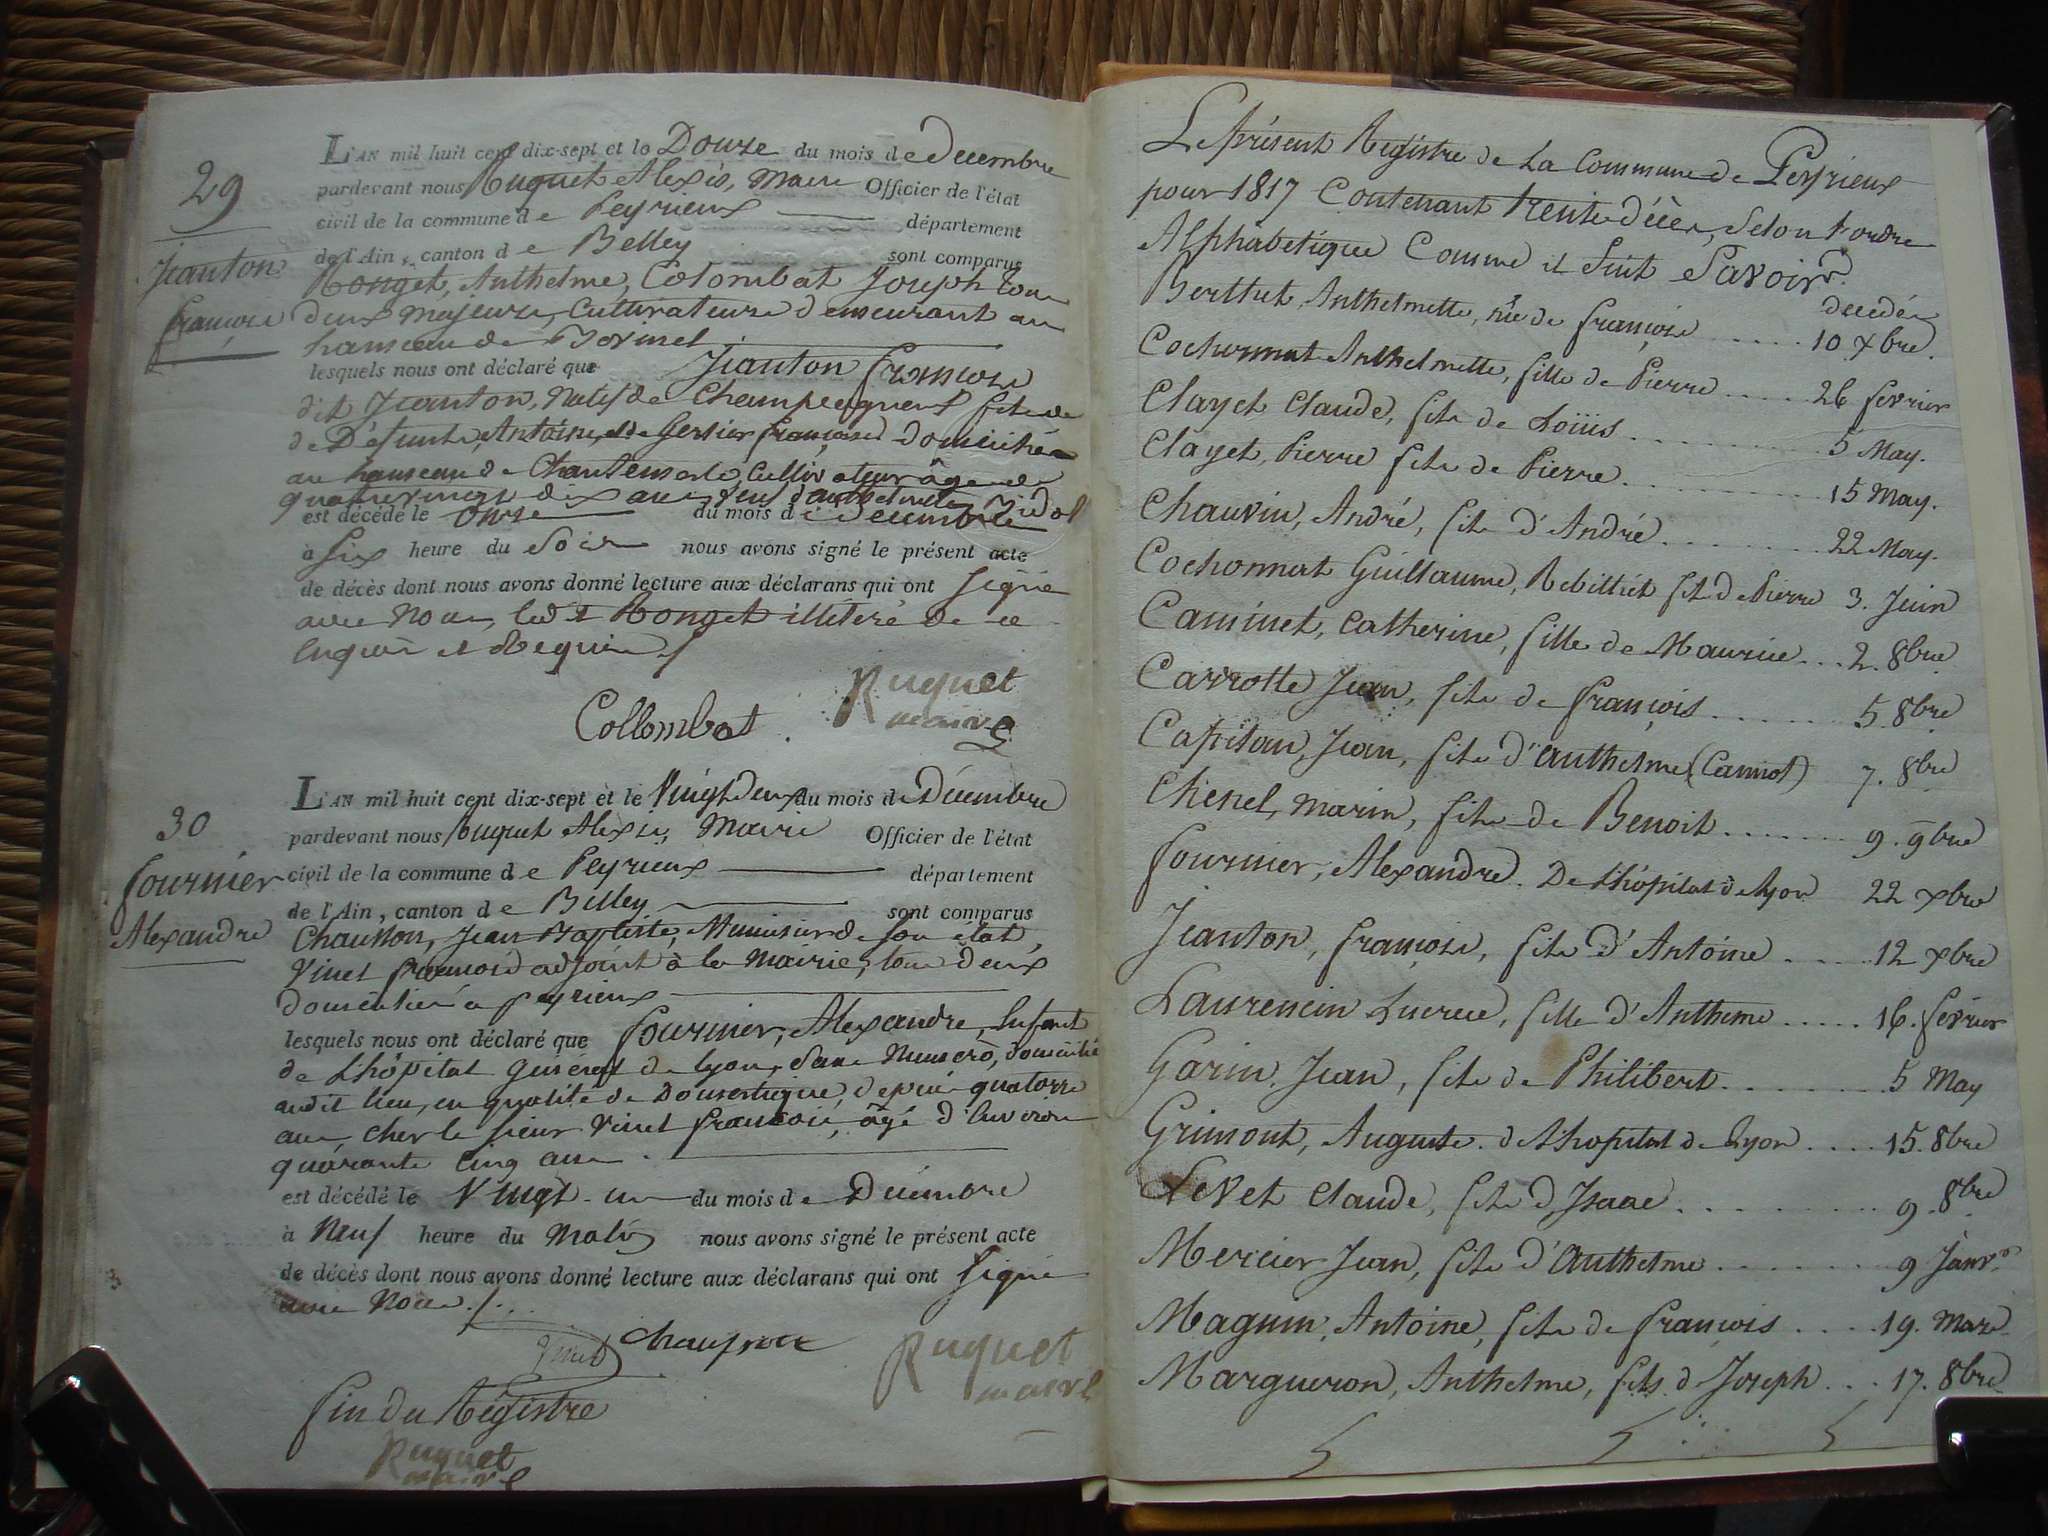 29
Jeanton
françois
L'AN mil huit cent dix-sept et le Douze du mois de Decembre
pardevant nous Ruquet Alexis, Maire Officier de l'état
civil de la commune de Peyrieux département
de l'Ain, canton de Belley sont comparus
Ronget, Anthelme, Colombat Joseph tous
deux majeurs, Cultivateurs demeurant au
hameau de
lesquels nous ont déclaré que Jeanton françois
dit Jeanton, Natif de Champagneux fils de
de Défunts, Antoine, et de françoise domicilié
au hameau de Chantemerle Cultivateur âgé de
quatrevingt dix ans veuf d'anthelmette Vidol
est décédé le onze du mois de Decembre
à Six heure du Soir nous avons signé le présent acte
de décès dont nous avons donné lecture aux déclarans qui ont Signé
avec Nous, led.t Ronget illiteré de ce
Enquis et Requis ./
Collombat. Ruquet
maire
30
fournier
Alexandre
L'AN mil huit cent dix-sept et le Vingt deux du mois de Décembre
pardevant nous Ruquet Alexis, Maire Officier de l'état
civil de la commune de Peyrieux département
de l'Ain, canton de Belley sont comparus
Chausson, Jean Baptiste, Menuisier de Son état,
Vinet françois adjoint à la Mairie, tous deux
domiciliés à peyrieux
lesquels nous ont déclaré que fournier, Alexandre, Enfant
de L'hôpital Général de Lyon, Sans Numero, domicilié
audit lieu, en qualité de Domestique, depuis quatorze
ans, chez le Sieur Vinet françois, âgé d'Environ
quarante cinq ans.
est décédé le Vingt-un du mois de Décembre
à Neuf heure du Matin nous avons signé le présent acte
de décès dont nous avons donné lecture aux déclarans qui ont Signé
avec Nous ./.
Vinet Chausson Ruquet
maire
fin du Régistre
Ruquet
maire
Le présent Régistre de la Commune de Peyrieux
pour 1817 Contenant trente décès, Selon l'ordre
Alphabetique Comme il Suit Savoir.
decedés
Berthet, Anthelmette, née de françois ...... 10 xbre.
Cochonnat Anthelmette, fille de Pierre ..... 26 fevrier
Clayet Claude, fils de Loüis ......... 5 May.
Clayet, Pierre fils de Pierre ......... 15 May.
Chauvin, André, fils d'André ........ 22 May.
Cochonnat Guillaume, Rebilliet fils de Pierre 3. Juin
Caminet, Catherine, fille de Maurice ... 2. 8bre
Carrotte Jean, fils de françois ...... 5. 8bre
Capitan, Jean, fils d'anthelme (Cannot) 7. 8bre
Chenel, Marin, fils de Benoit ....... 9. 9bre
fournier, Alexandre. De L'hôpital de Lyon 22 xbre
Jeanton, françois, fils d'Antoine ..... 12 xbre
Laurencin Lucrece, fille d'Antheme ..... 16. fevrier
Garin, Jean, fils de Philibert ....... 5 May
Grimont, Auguste. de L'hopital de Lyon .... 15. 8bre
Levet Claude, fils d'Isaac ......... 9. 8bre
Mercier Jean, fils d'anthelme ........ 9 Janv.r
Magnin, Antoine, fils de françois .... 19. Mars
Margueron, Anthelme, fils d Joseph ... 17. 8bre